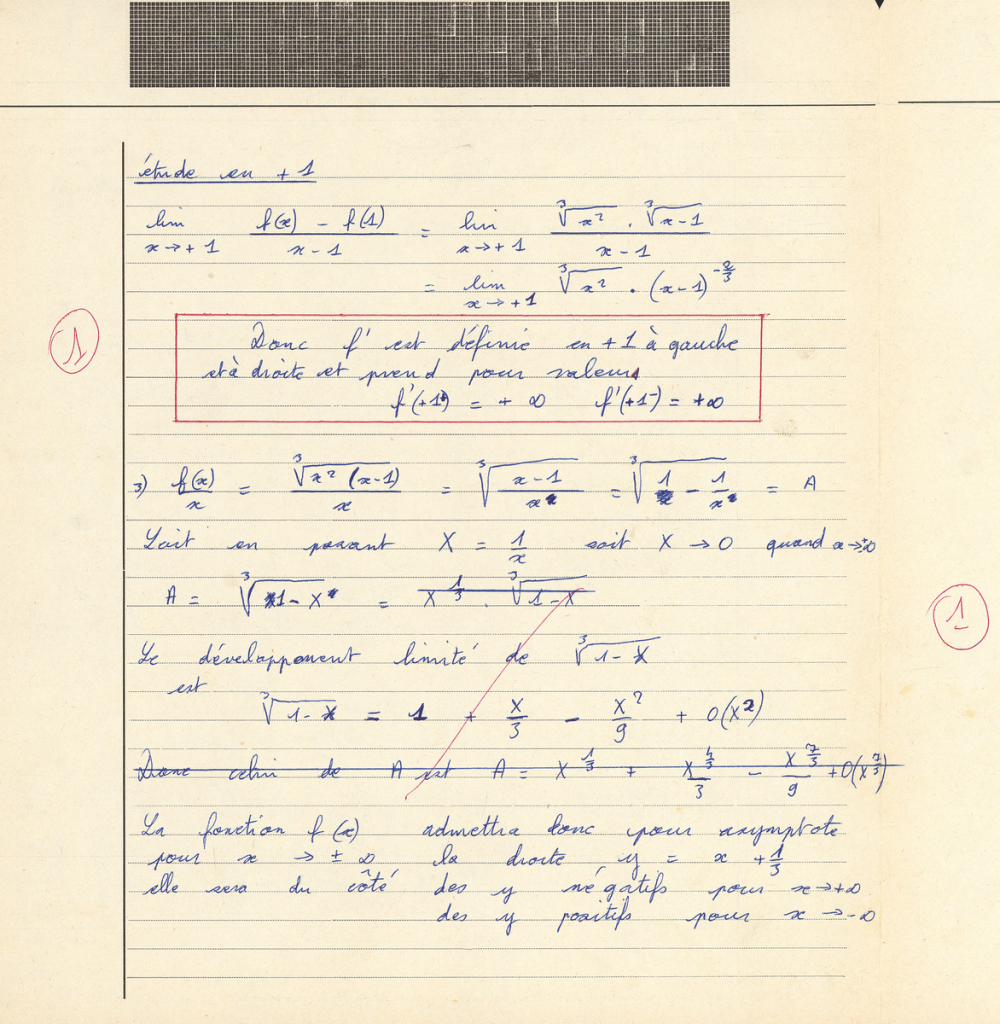 étude en +1
lim x→+1 (f(x) - f(1))/(x-1) = lim x→+1 (∛x² . ∛x-1)/(x-1)
= lim x→+1 ∛x² . (x-1)^(-2/3)
1
Donc f' est définie en +1 à gauche
et à droite et prend pour valeurs
f'(+1⁺) = +∞ f'(+1⁻) = +∞
3) f(x)/x = ∛(x²(x-1))/x = ∛((x-1)/x) = ∛(1 - 1/x) = A
Soit en posant X = 1/x soit X → 0 quand x→±∞
A = ∛(1-X) = X^(1/3) . ∛(1-X)
1
Le développement limité de ∛(1-X)
est
∛(1-X) = 1 + X/3 - X²/9 + O(X²)
Donc celui de A est A = X^(1/3) + X^(4/3)/3 - X^(7/3)/9 + O(X^(7/3))
La fonction f(x) admettra donc pour asymptote
pour x → ±∞ la droite y = x + 1/3
elle sera du côté des y négatifs pour x→+∞
des y positifs pour x→-∞